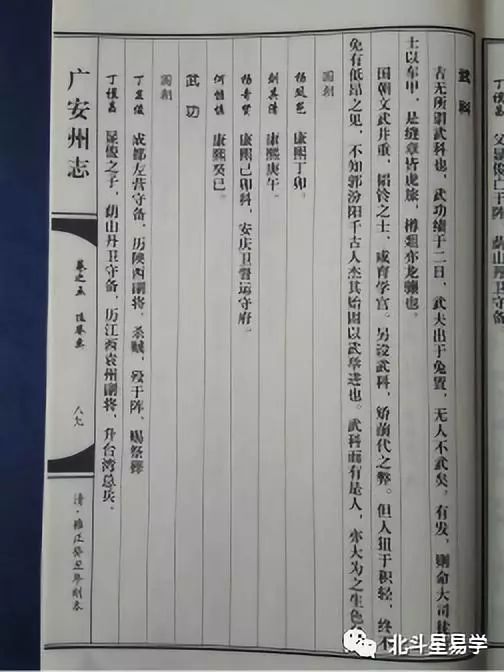 父显俊亡于阵，荫山丹卫守备
武科
古无所谓武科也，武功缵于二日，武夫出于兔罝，无人不武矣。有发，则命大司徒
士以车甲，是缝章皆虎旅，樽俎亦龙骧也。
国朝文武并重，韬钤之士，咸育学宫。另设武科，矫前代之弊。但人狃于积轻，终不
免有低昂之见，不知郭汾阳千古人杰其始固以武举进也。武科而有是人，亦大为之生色
国朝
康熙丁卯。
刘其清 康熙庚午。
杨奇贤 康熙己卯科，安庆卫督运守府。
何惟慎 康熙癸巳。
武功
国朝
丁显俊 成都左营守备，历陕西副将，杀贼，殁于阵，赐祭葬
显俊之子，荫山丹卫守备，历江西袁州副将，升台湾总兵。
广安州志
卷之五 选举志
八九
清·雍正癸丑年刻本
北斗星易学